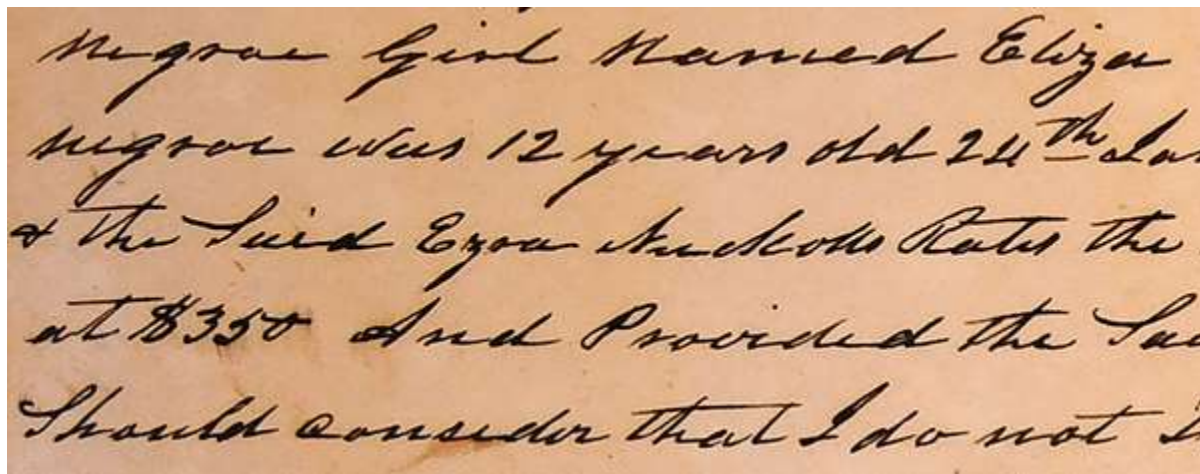 negroe Girl Named Eliza
negroe was 12 years old 24th Jan
& the Said Ezra Nuckolls Rates the
at $350 And Provided the Sai
Should consider that I do not